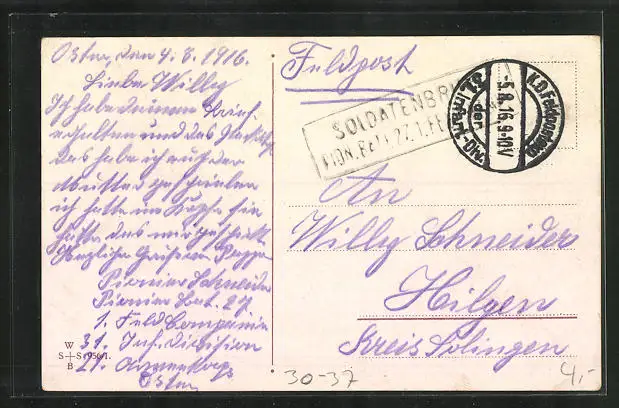 Osten, den 4.8.1916.
Lieber Willy
Ich habe deinen Brief
erhalten und das
das habe ich auch der
Mutter geschrieben
ich hatte im
hätte, das mir geschickt
Herzliche Grüsse Pappa
Pionier Schneider
Pionier Bat. 27
1. Feld Compannie
31. Inf. Division
21. Armeekorps
Osten
W
S+S 956/1.
B
Feldpost
SOLDATENBRI
PION. Batl. 27. 1. FE
K.D. Feldpostexp.
-5.8.16. 9-10V
der
Infant.-Div.
An
Willy Schneider
Hilgen
Kreis Solingen
30-37
4,-